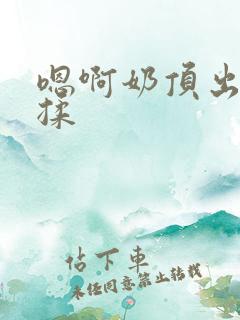 嗯啊奶頂出
揉
佔下車
未经同意禁止转载